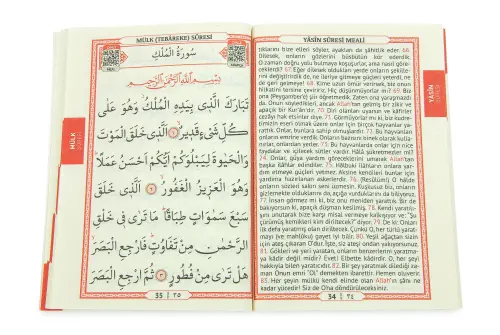 MÜLK (TEBÂREKE) SÛRESİ
سُورَةُ الْمُلْكِ
بِسْمِ اللّٰهِ الرَّحْمٰنِ الرَّحِيمِ
تَبَارَكَ الَّذِي بِيَدِهِ الْمُلْكُ وَهُوَ عَلٰى
كُلِّ شَيْءٍ قَدِيرٌ ١ اَلَّذِي خَلَقَ الْمَوْتَ
وَالْحَيٰوةَ لِيَبْلُوَكُمْ اَيُّكُمْ اَحْسَنُ عَمَلًا
وَهُوَ الْعَزِيزُ الْغَفُورُ ٢ اَلَّذِي خَلَقَ
سَبْعَ سَمٰوَاتٍ طِبَاقًا مَا تَرٰى فِي خَلْقِ
الرَّحْمٰنِ مِنْ تَفَاوُتٍ فَارْجِعِ الْبَصَرَ
هَلْ تَرٰى مِنْ فُطُورٍ ٣ ثُمَّ ارْجِعِ الْبَصَرَ
35 ٣٥
MÜLK
YÂSÎN SÛRESİ MEALİ
tıklarını bize elleri söyler, ayakları da şâhitlik eder. 66.
Dilesek, onların gözlerini büsbütün kör ederdik.
O zaman doğru yolu bulmaya koşuşurlar, ama nasıl göre-
ceklerdi? 67. Eğer dilesek oldukları yerde onların şekille-
rini değiştirirdik de, ne ileriye gitmeye güçleri yeterdi, ne
de geri gelmeye! 68. Kime uzun ömür verirsek, biz onun
hilkatini tersine çeviririz, Hiç düşünmüyorlar mı? 69. Biz
ona (Peygamber'e) şiir öğretmedik. Zaten ona yaraşmazdı
da. Onun söyledikleri, ancak Allah'tan gelmiş bir zikir ve
apaçık bir Kur'ân'dır. 70. Diri olanları uyarsın ve kâfirler
cezâyı hak etsinler diye. 71. Görmüyorlar mı ki, biz kudre-
timizin eseri olmak üzere onlar için birçok hayvanlar ya-
rattık. Onlar, bunlara sahip olmuşlardır. 72. Bu hayvanları
onların emrine verdik. Onların bazısını binek olarak kulla-
nırlar, onlardan yerler. 73. Bu hayvanlarda onlar için nice
faydalar ve içilecek sütler vardır. Hâlâ şükretmezler mi?
74. Onlar, güya yardım göreceklerini umarak Allah'tan
başka ilâhlar edindiler. 75. Hâlbuki ilâhların onlara yar-
dım etmeye güçleri yetmez. Aksine kendileri bunlar için
yardıma hazırlanan askerlerdir. 76. (Resûlüm) O hâlde
onların sözleri sakın seni üzmesin. Kuşkusuz biz, onların
gizlemekte olduklarını da, açığa vurduklarını da biliyoruz.
77. İnsan görmez mi ki, biz onu meniden yarattık. Bir de
bakıyorsun ki, apaçık düşman kesilmiş. 78. Kendi yaratılı-
şını unutarak bize karşı misal vermeye kalkışıyor ve: "Şu
çürümüş kemikleri kim diriltecek?" diyor. 79. De ki: Onları
ilk defa yaratmış olan diriltecek. Çünkü O, her türlü yarat-
mayı (ve mahlûku) gayet iyi bilir. 80. Yeşil ağaçtan sizin
için ateş çıkaran O'dur. İşte, siz ateşi ondan yakıyorsunuz.
81. Gökleri ve yeri yaratan, onların benzerlerini yaratma-
ya kâdir değil midir? Evet! Elbette kâdirdir. O, her şeyi
hakkıyla bilen yaratıcıdır. 82. Bir şey yaratmak diledi­ği za-
man Onun emri "Ol" demekten ibarettir. Hemen oluverir.
83. Her şeyin mülkü kendi elinde olan Allah'ın şânı ne
kadar yücedir! Siz de O'na döndürüleceksiniz.
34 ٣٤
YÂSÎN